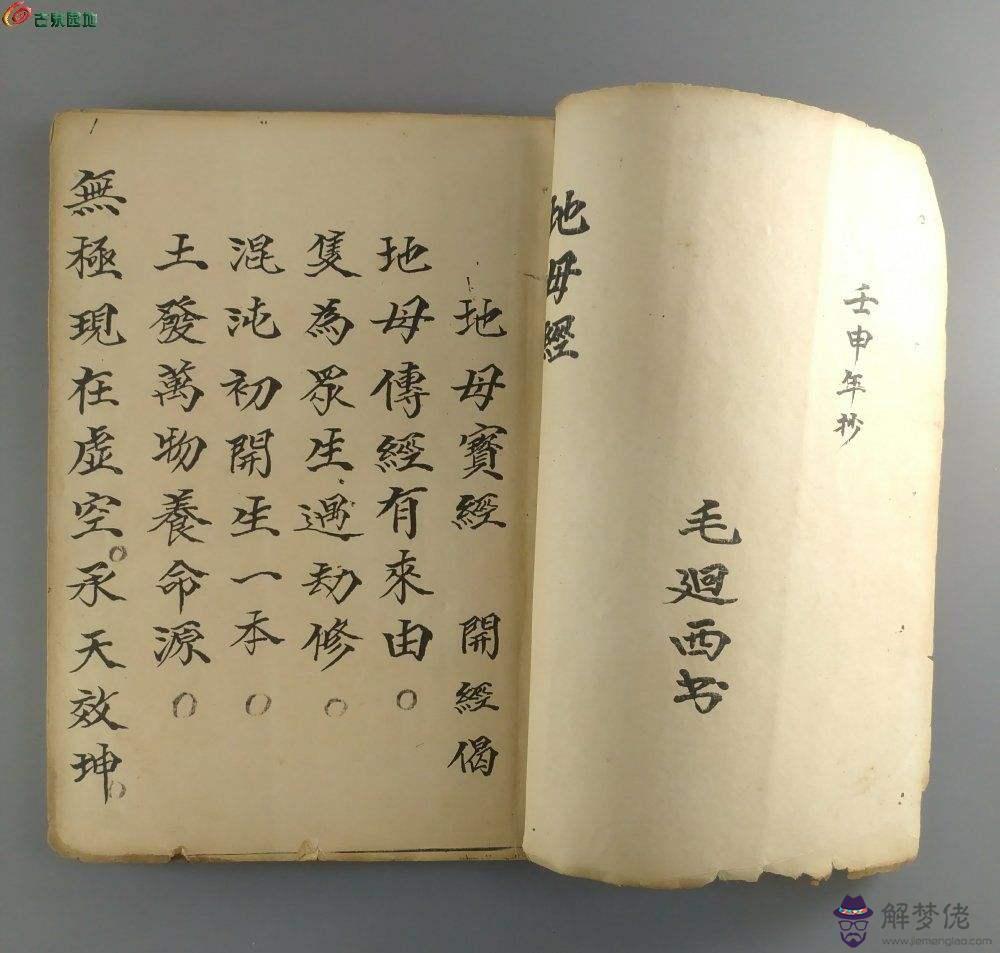 壬申年抄
毛廻西书
地母經
地母寶經 開經偈
地母傳經有來由○
隻為眾生遇劫修○
混沌初開生一本○
土發萬物養命源○
無極現在虛空○承天效坤○
1
古泉园地
解梦佬
www.jiemenglao.com